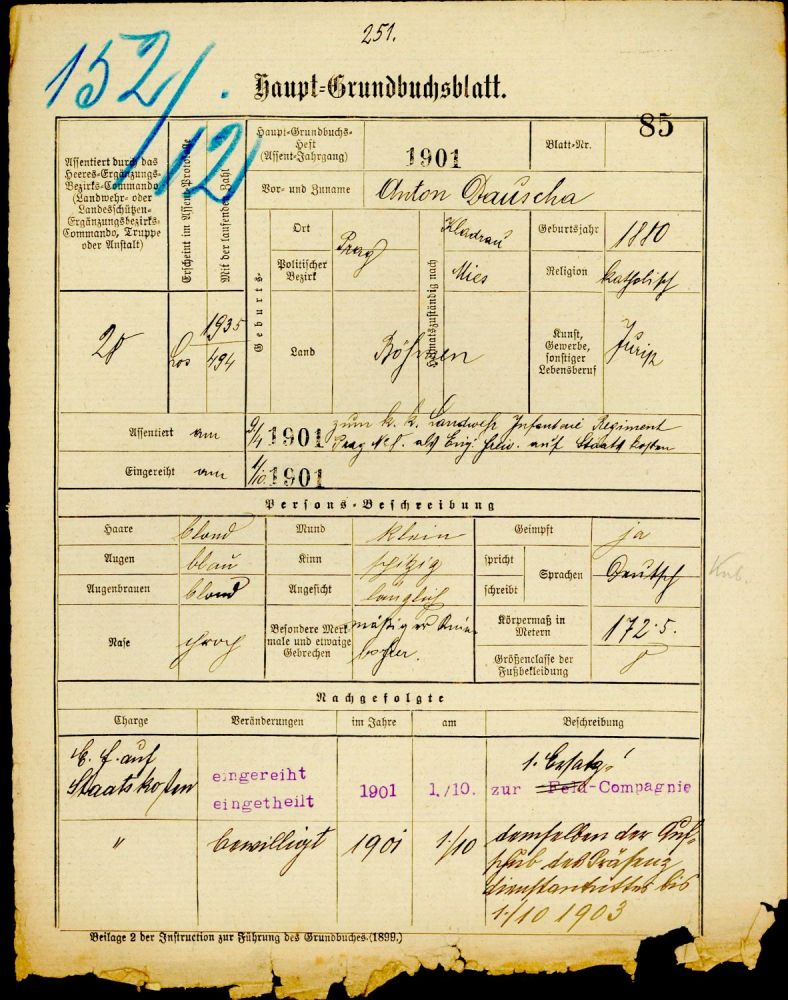 251.
152/12
Haupt-Grundbuchsblatt.
85
Assentiert durch das
Heeres-Ergänzungs-
Bezirks-Commando
(Landwehr- oder
Landesschützen-
Ergänzungsbezirks-
Commando, Truppe
oder Anstalt)
Erscheint im Assent-Protokolle
Mit der laufenden Zahl
Haupt-Grundbuchs-
Heft
(Assent-Jahrgang)
1901
Blatt-Nr.
Vor- und Zuname
Anton Dauscha
Geburts-
Ort
Prag
Politischer
Bezirk
Land
Böhmen
Heimatszuständig nach
Kladrau
Mies
Geburtsjahr
1880
Religion
katholisch
Kunst,
Gewerbe,
sonstiger
Lebensberuf
Jurist
28
Los
1935
494
Assentiert am
1901
zum k. k. Landwehr Infanterie Regiment
Prag No 8. als Einj. Freiw. auf Staatskosten
Eingereiht am
1/10. 1901
Persons-Beschreibung
Haare
blond
Mund
klein
Geimpft
ja
Augen
blau
Kinn
spitzig
spricht
schreibt
Sprachen
Deutsch
Augenbrauen
blond
Angesicht
länglich
Nase
Besondere Merk-
male und etwaige
Gebrechen
mäßiger
Körpermaß in
Metern
172·5.
Größenclasse der
Fußbekleidung
8
Nachgefolgte
Charge
Veränderungen
im Jahre
am
Beschreibung
E. F. auf
Staatskosten
eingereiht
eingetheilt
1901
1./10.
1. Ersatz
zur Feld-Compagnie
"
bewilligt
1901
1/10
demselben der Auf-
schub des Präsenz
dienstantrittes bis
1/10 1903
Beilage 2 der Instruction zur Führung des Grundbuches (1899.)